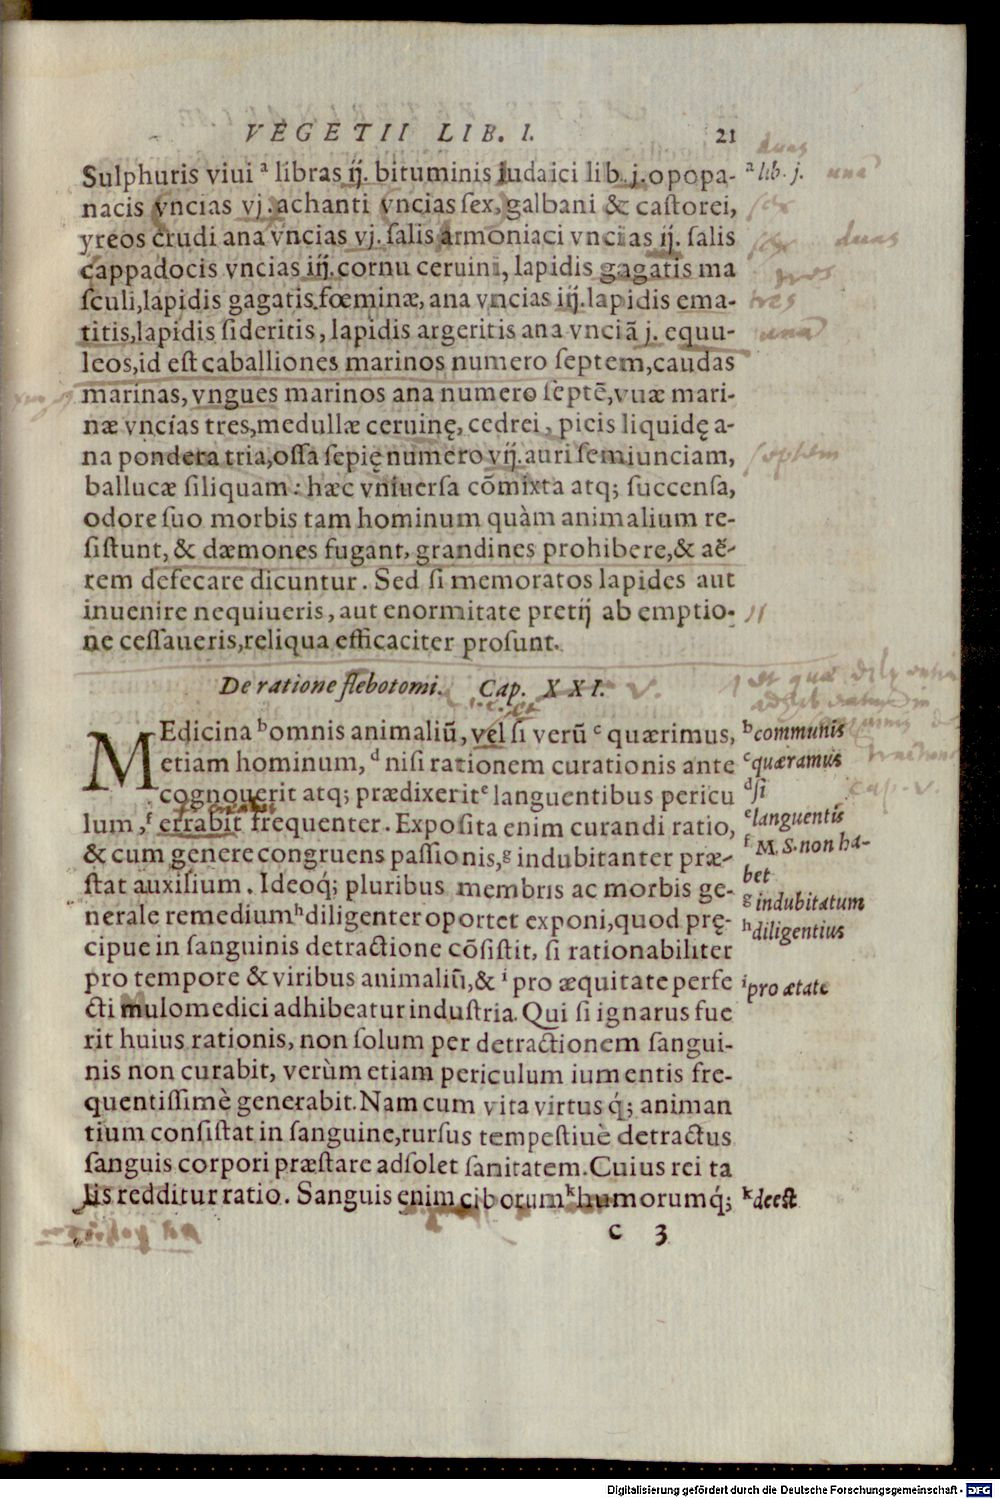 VEGETII LIB. I. 21
Sulphuris viui ᵃ libras ij. bituminis Iudaici lib. j. opopa-
nacis vncias vj. achanti vncias sex, galbani & castorei,
yreos crudi ana vncias vj. salis armoniaci vncias ij. salis
cappadocis vncias iij. cornu ceruini, lapidis gagatis ma
sculi, lapidis gagatis fœminæ, ana vncias iij. lapidis ema-
titis, lapidis sideritis, lapidis argeritis ana vnciã j. equu-
leos, id est caballiones marinos numero septem, caudas
marinas, vngues marinos ana numero septẽ, vuæ mari-
næ vncias tres, medullæ ceruinę, cedrei, picis liquidę a-
na pondera tria, ossa sepię numero vij. auri semiunciam,
ballucæ siliquam: hæc vniuersa cõmixta atq; succensa,
odore suo morbis tam hominum quàm animalium re-
sistunt, & dæmones fugant, grandines prohibere, & aë-
rem defecare dicuntur. Sed si memoratos lapides aut
inuenire nequiueris, aut enormitate pretij ab emptio-
ne cessaueris, reliqua efficaciter prosunt.
De ratione flebotomi. Cap. XXI.
MEdicina ᵇ omnis animaliũ, vel si verũ ᶜ quærimus,
etiam hominum, ᵈ nisi rationem curationis ante
cognouerit atq; prædixerit ᵉ languentibus pericu
lum, ᶠ errabit frequenter. Exposita enim curandi ratio,
& cum genere congruens passionis, ᵍ indubitanter præ-
stat auxilium. Ideoq́; pluribus membris ac morbis ge-
nerale remedium ʰ diligenter oportet exponi, quod prę-
cipue in sanguinis detractione cõsistit, si rationabiliter
pro tempore & viribus animaliũ, & ⁱ pro æquitate perfe
cti mulomedici adhibeatur industria. Qui si ignarus fue
rit huius rationis, non solum per detractionem sangui-
nis non curabit, verùm etiam periculum iumentis fre-
quentissimè generabit. Nam cum vita virtusq́; animan
tium consistat in sanguine, rursus tempestiuè detractus
sanguis corpori præstare adsolet sanitatem. Cuius rei ta
lis redditur ratio. Sanguis enim ciborum ᵏ humorumq́;
c 3
duas
ᵃ lib. j. una
sex
sex duas
tres
tres
una
septem
ᵇ communis
ᶜ quæramus
ᵈ si
ᵉ languentis
ᶠ M. S. non ha-
bet
ᵍ indubitatum
ʰ diligentius
ⁱ pro ætate
ᵏ deest
cap. V.
Digitalisierung gefördert durch die Deutsche Forschungsgemeinschaft - DFG